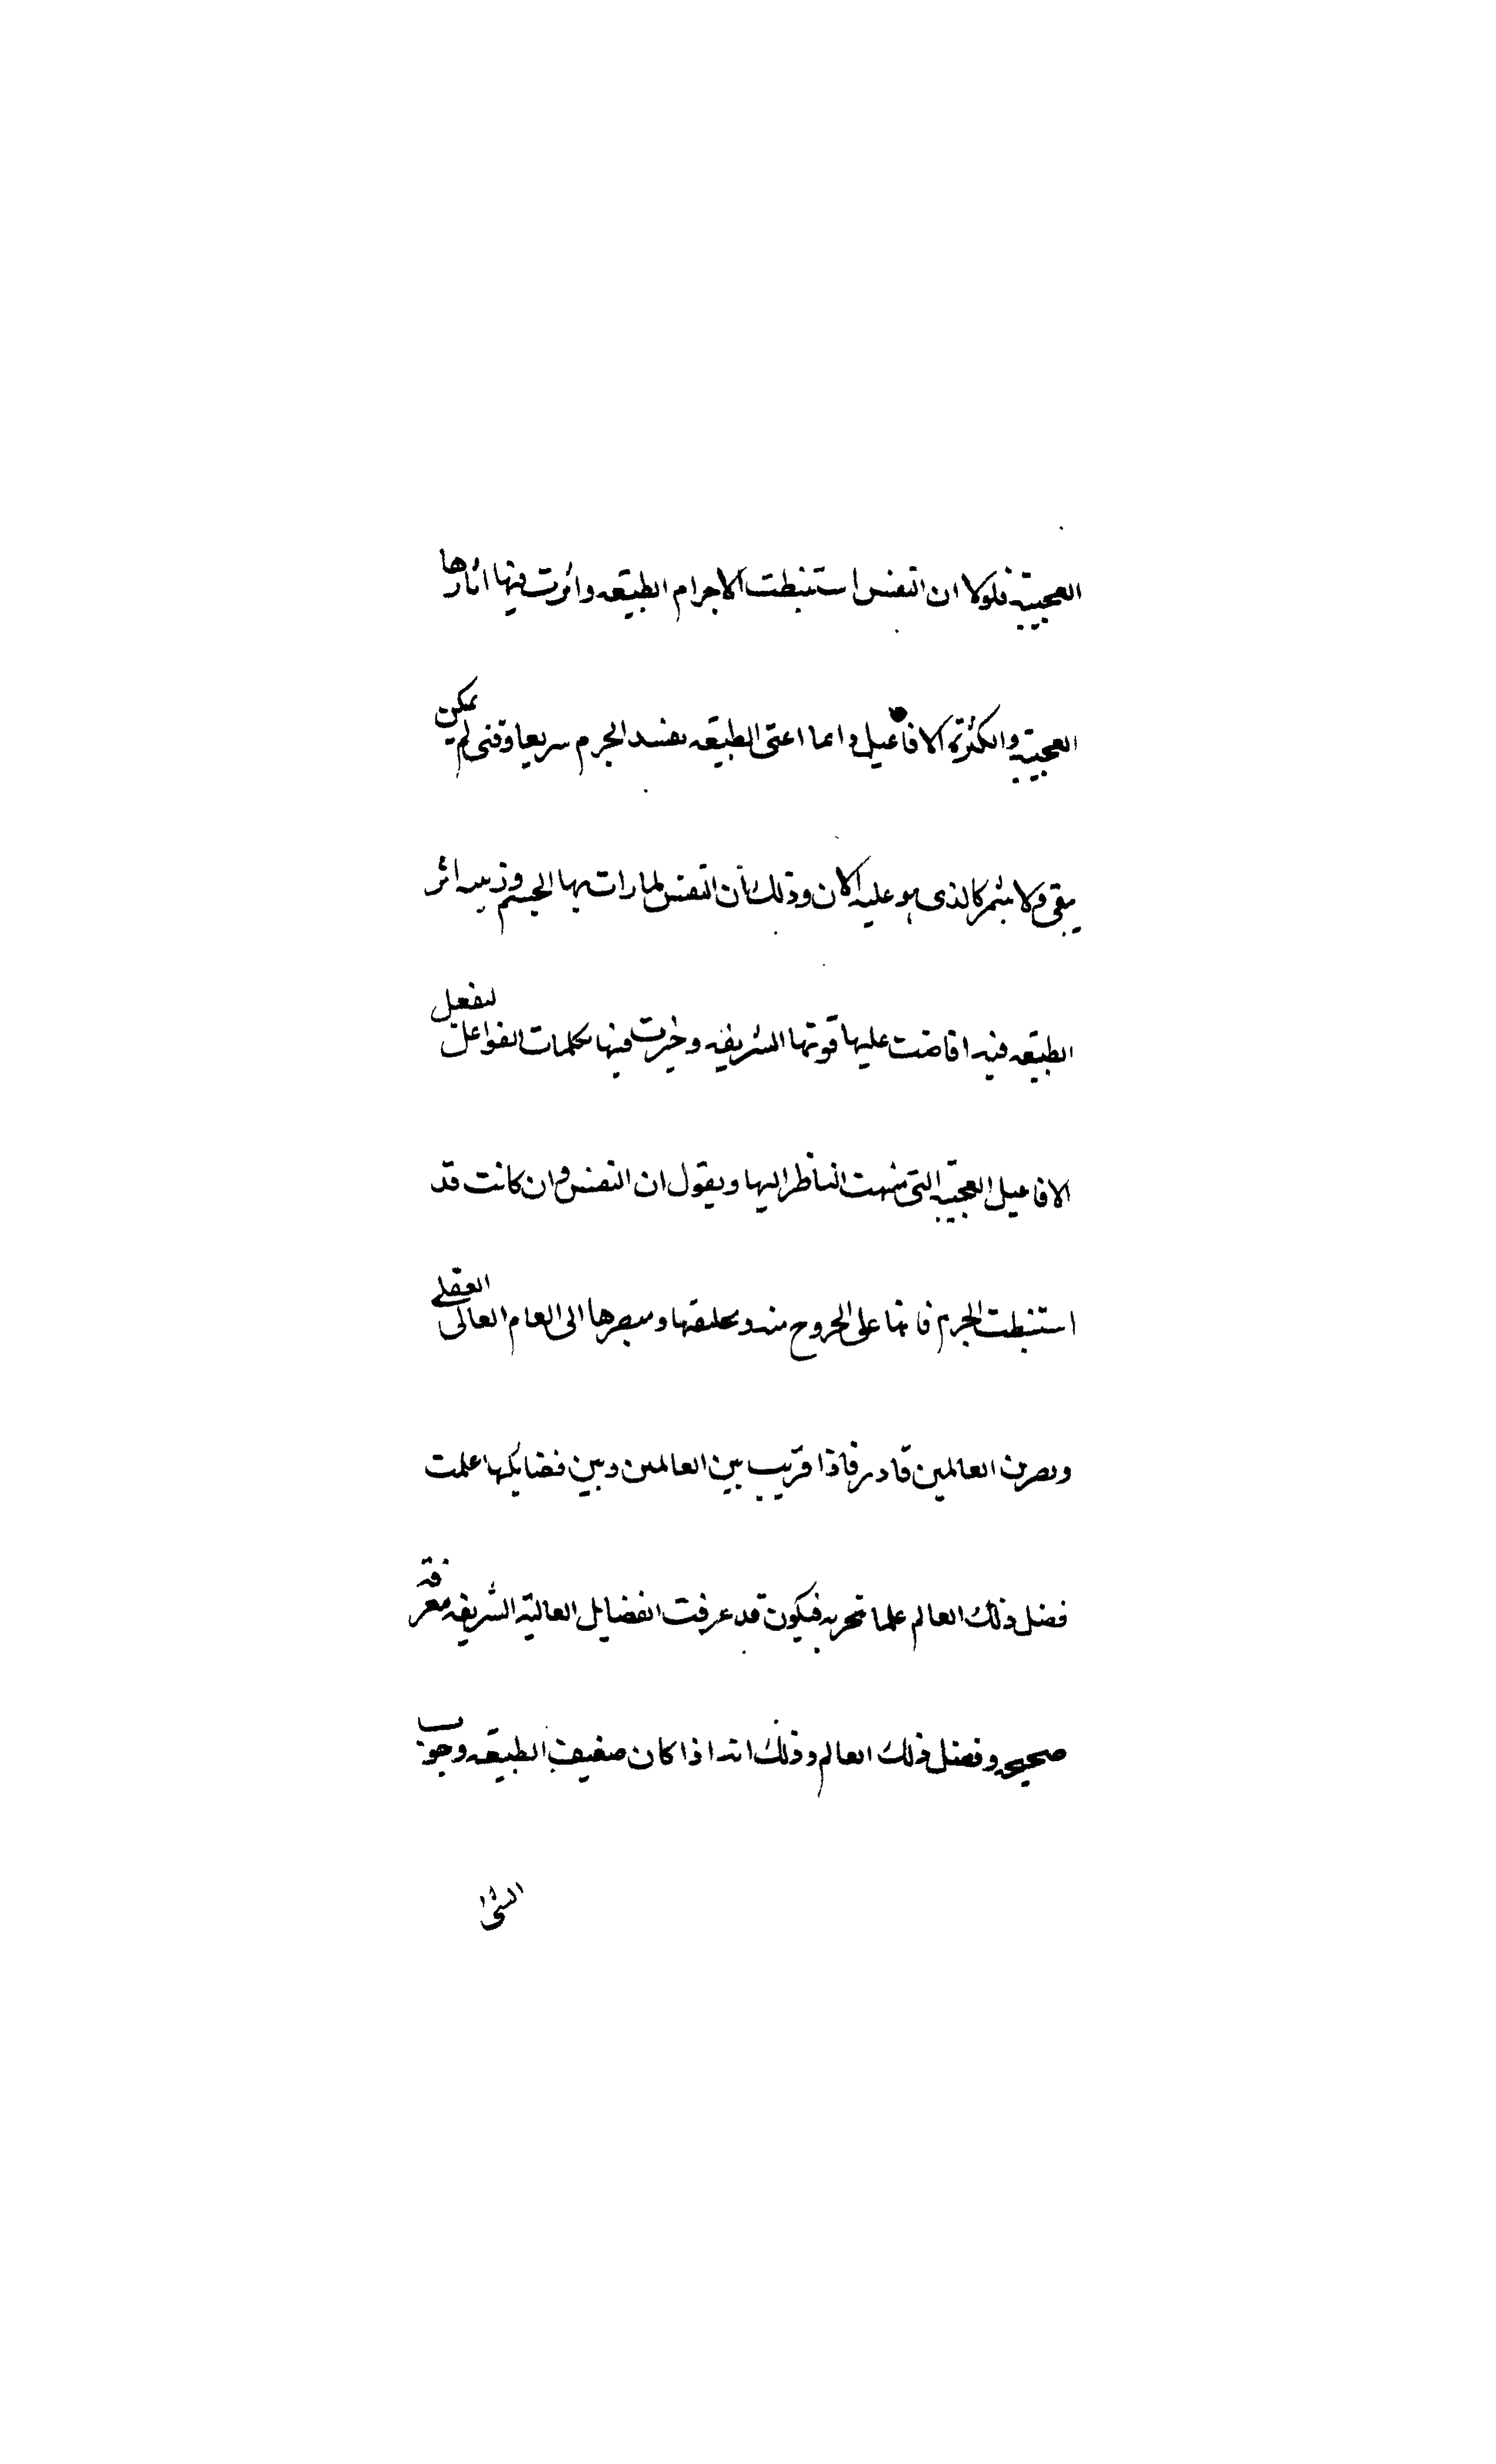 العجيبة فلولا ان النفس استنبطت الاجرام الطبيعه واثرت فيها اثارها
العجيبة والكثرة الافاعيل دايما اعنى الطبيعه لفسد الجرم سريعا وفنى لم يمكن
يبقى ولا يثمر كالذى هو عليه الان وذلك ان النفس لما رات بها الجسم وزينه اثر
الطبيعه فيه افاضت عليها قوتها الشريفه وخيرت فيها كلمات الفواعل لتفعل
الافاعيل العجيبة التى تبهت الناظر اليها ويقول ان النفس وان كانت قد
استنبطت الجرم فانها على الخروج منه و تخليفها ومصيرها الى العام العالى العقلى
وبصرف العالمين قادر فاذا قريب بين العالمين وبين فضايلها علمت
فضل ذلك العالم علما تحربه فيكون قد عرفت الفضايل العالية الشريفه معرفة
صحيحه وفضل ذلك العالم وذلك انه اذا كان ضعيف الطبيعه وجوب